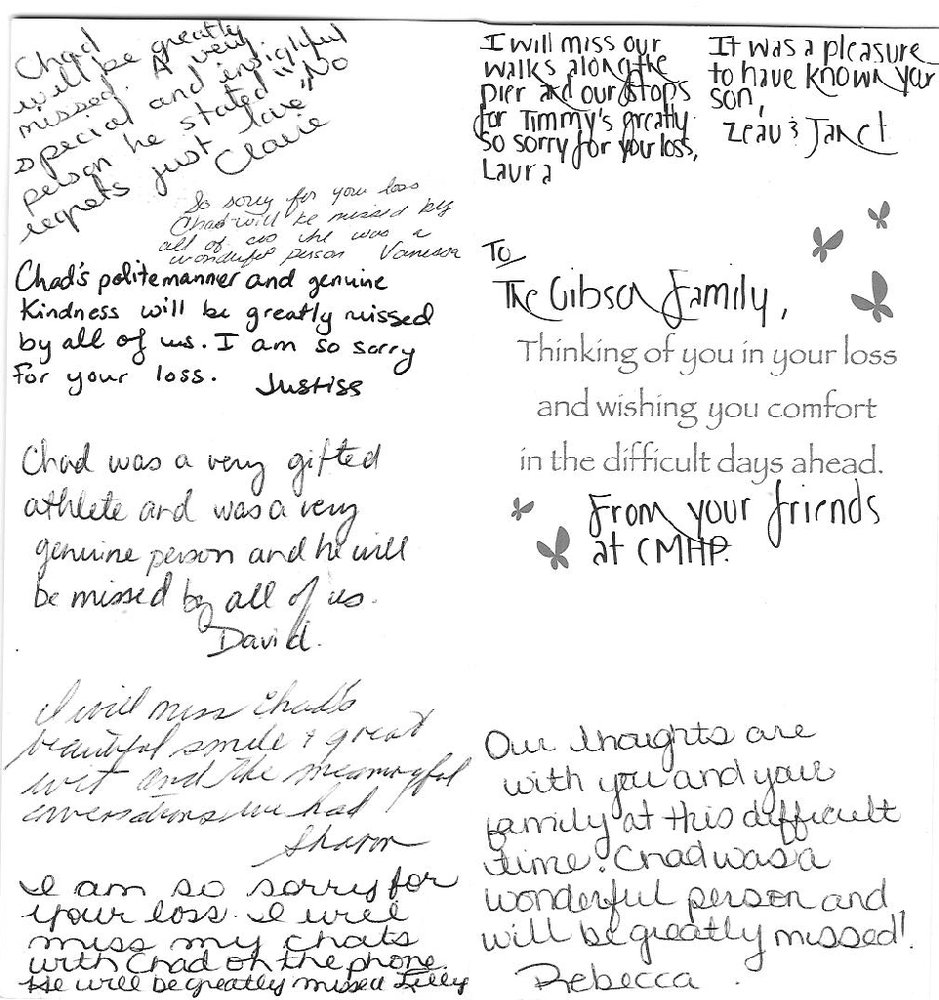 Chad
will be greatly
missed. A very
special and insightful
person he stated "No
regrets just love"
Claire
So sorry for your loss
Chad will be missed by
all of us he was a
wonderful person Vanessa
Chad's polite manner and genuine
Kindness will be greatly missed
by all of us. I am so sorry
for your loss. Justiss
Chad was a very gifted
athlete and was a very
genuine person and he will
be missed by all of us.
David.
I will miss Chad's
beautiful smile & great
wit and the meaningful
conversations we had
Sharon
I am so sorry for
your loss. I will
miss my chats
with Chad on the phone.
He will be greatly missed Lilly
I will miss our
walks along the
pier and our stops
for Timmy's greatly
so sorry for your loss,
Laura
It was a pleasure
to have known your
son,
& Janet
To
The Gibson Family,
Thinking of you in your loss
and wishing you comfort
in the difficult days ahead.
From your friends
at CMHP.
Our thoughts are
with you and your
family at this difficult
time. Chad was a
wonderful person and
will be greatly missed!
Rebecca